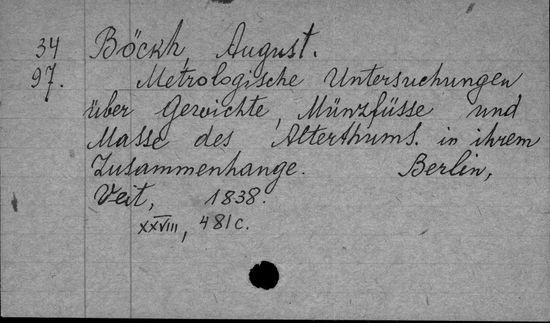 34 Böckh, August.
97. Metrologische Untersuchungen
über Gewichte, Münzfüsse und
Masse des Alterthums. in ihrem
Zusammenhange. Berlin,
Veit, 1838.
XXVIII, 481c.